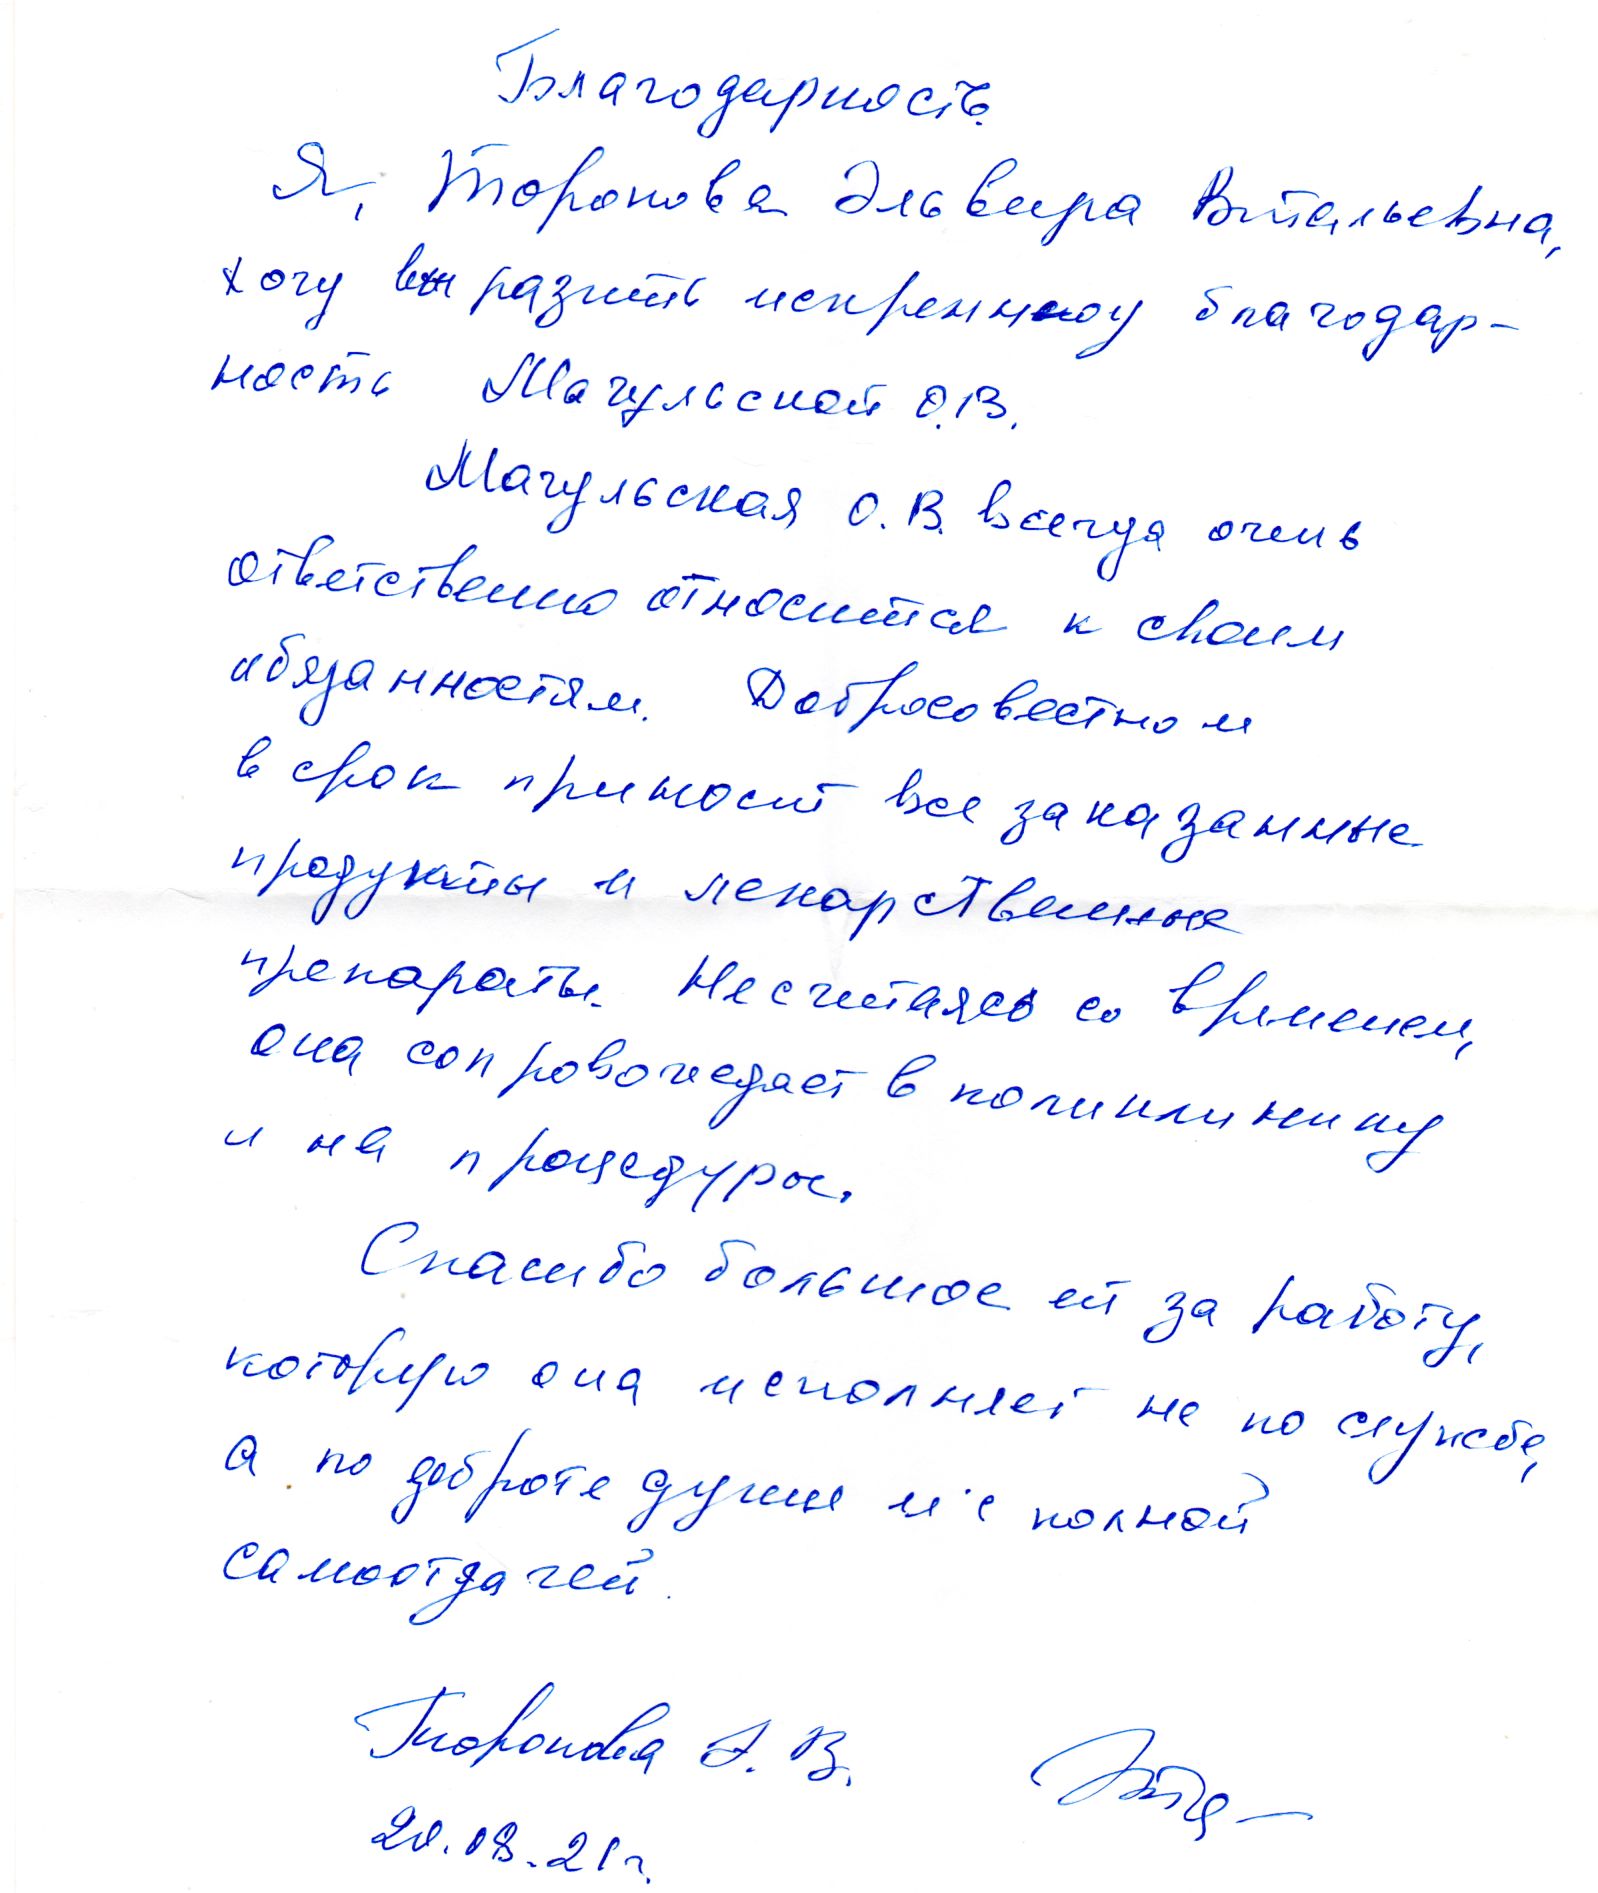 Благодарность
Я, Торопова Эльвира Витальевна,
хочу выразить искреннюю благодар-
ность Мачульской О.В.
Мачульская О.В. всегда очень
ответственно относится к своим
обязанностям. Добросовестно и
в срок приносит все заказанные
продукты и лекарственные
препараты. Не считаясь со временем,
она сопровождает в поликлинику
и на процедуры.
Спасибо большое ей за работу,
которую она исполняет не по службе,
а по доброте души и с полной
самоотдачей.
Торопова Э.В.
20.08.21г.